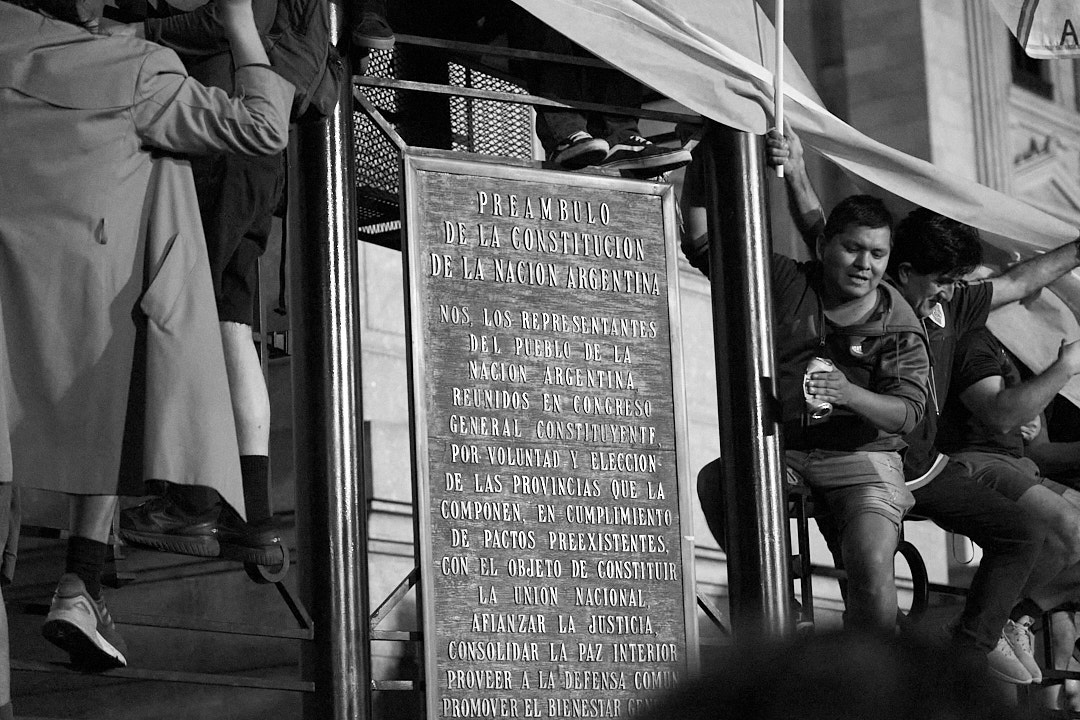 PREAMBULO
DE LA CONSTITUCION
DE LA NACION ARGENTINA
NOS, LOS REPRESENTANTES
DEL PUEBLO DE LA
NACION ARGENTINA,
REUNIDOS EN CONGRESO
GENERAL CONSTITUYENTE,
POR VOLUNTAD Y ELECCION
DE LAS PROVINCIAS QUE LA
COMPONEN, EN CUMPLIMIENTO
DE PACTOS PREEXISTENTES,
CON EL OBJETO DE CONSTITUIR
LA UNION NACIONAL,
AFIANZAR LA JUSTICIA,
CONSOLIDAR LA PAZ INTERIOR
PROVEER A LA DEFENSA COMUN
PROMOVER EL BIENESTAR
A